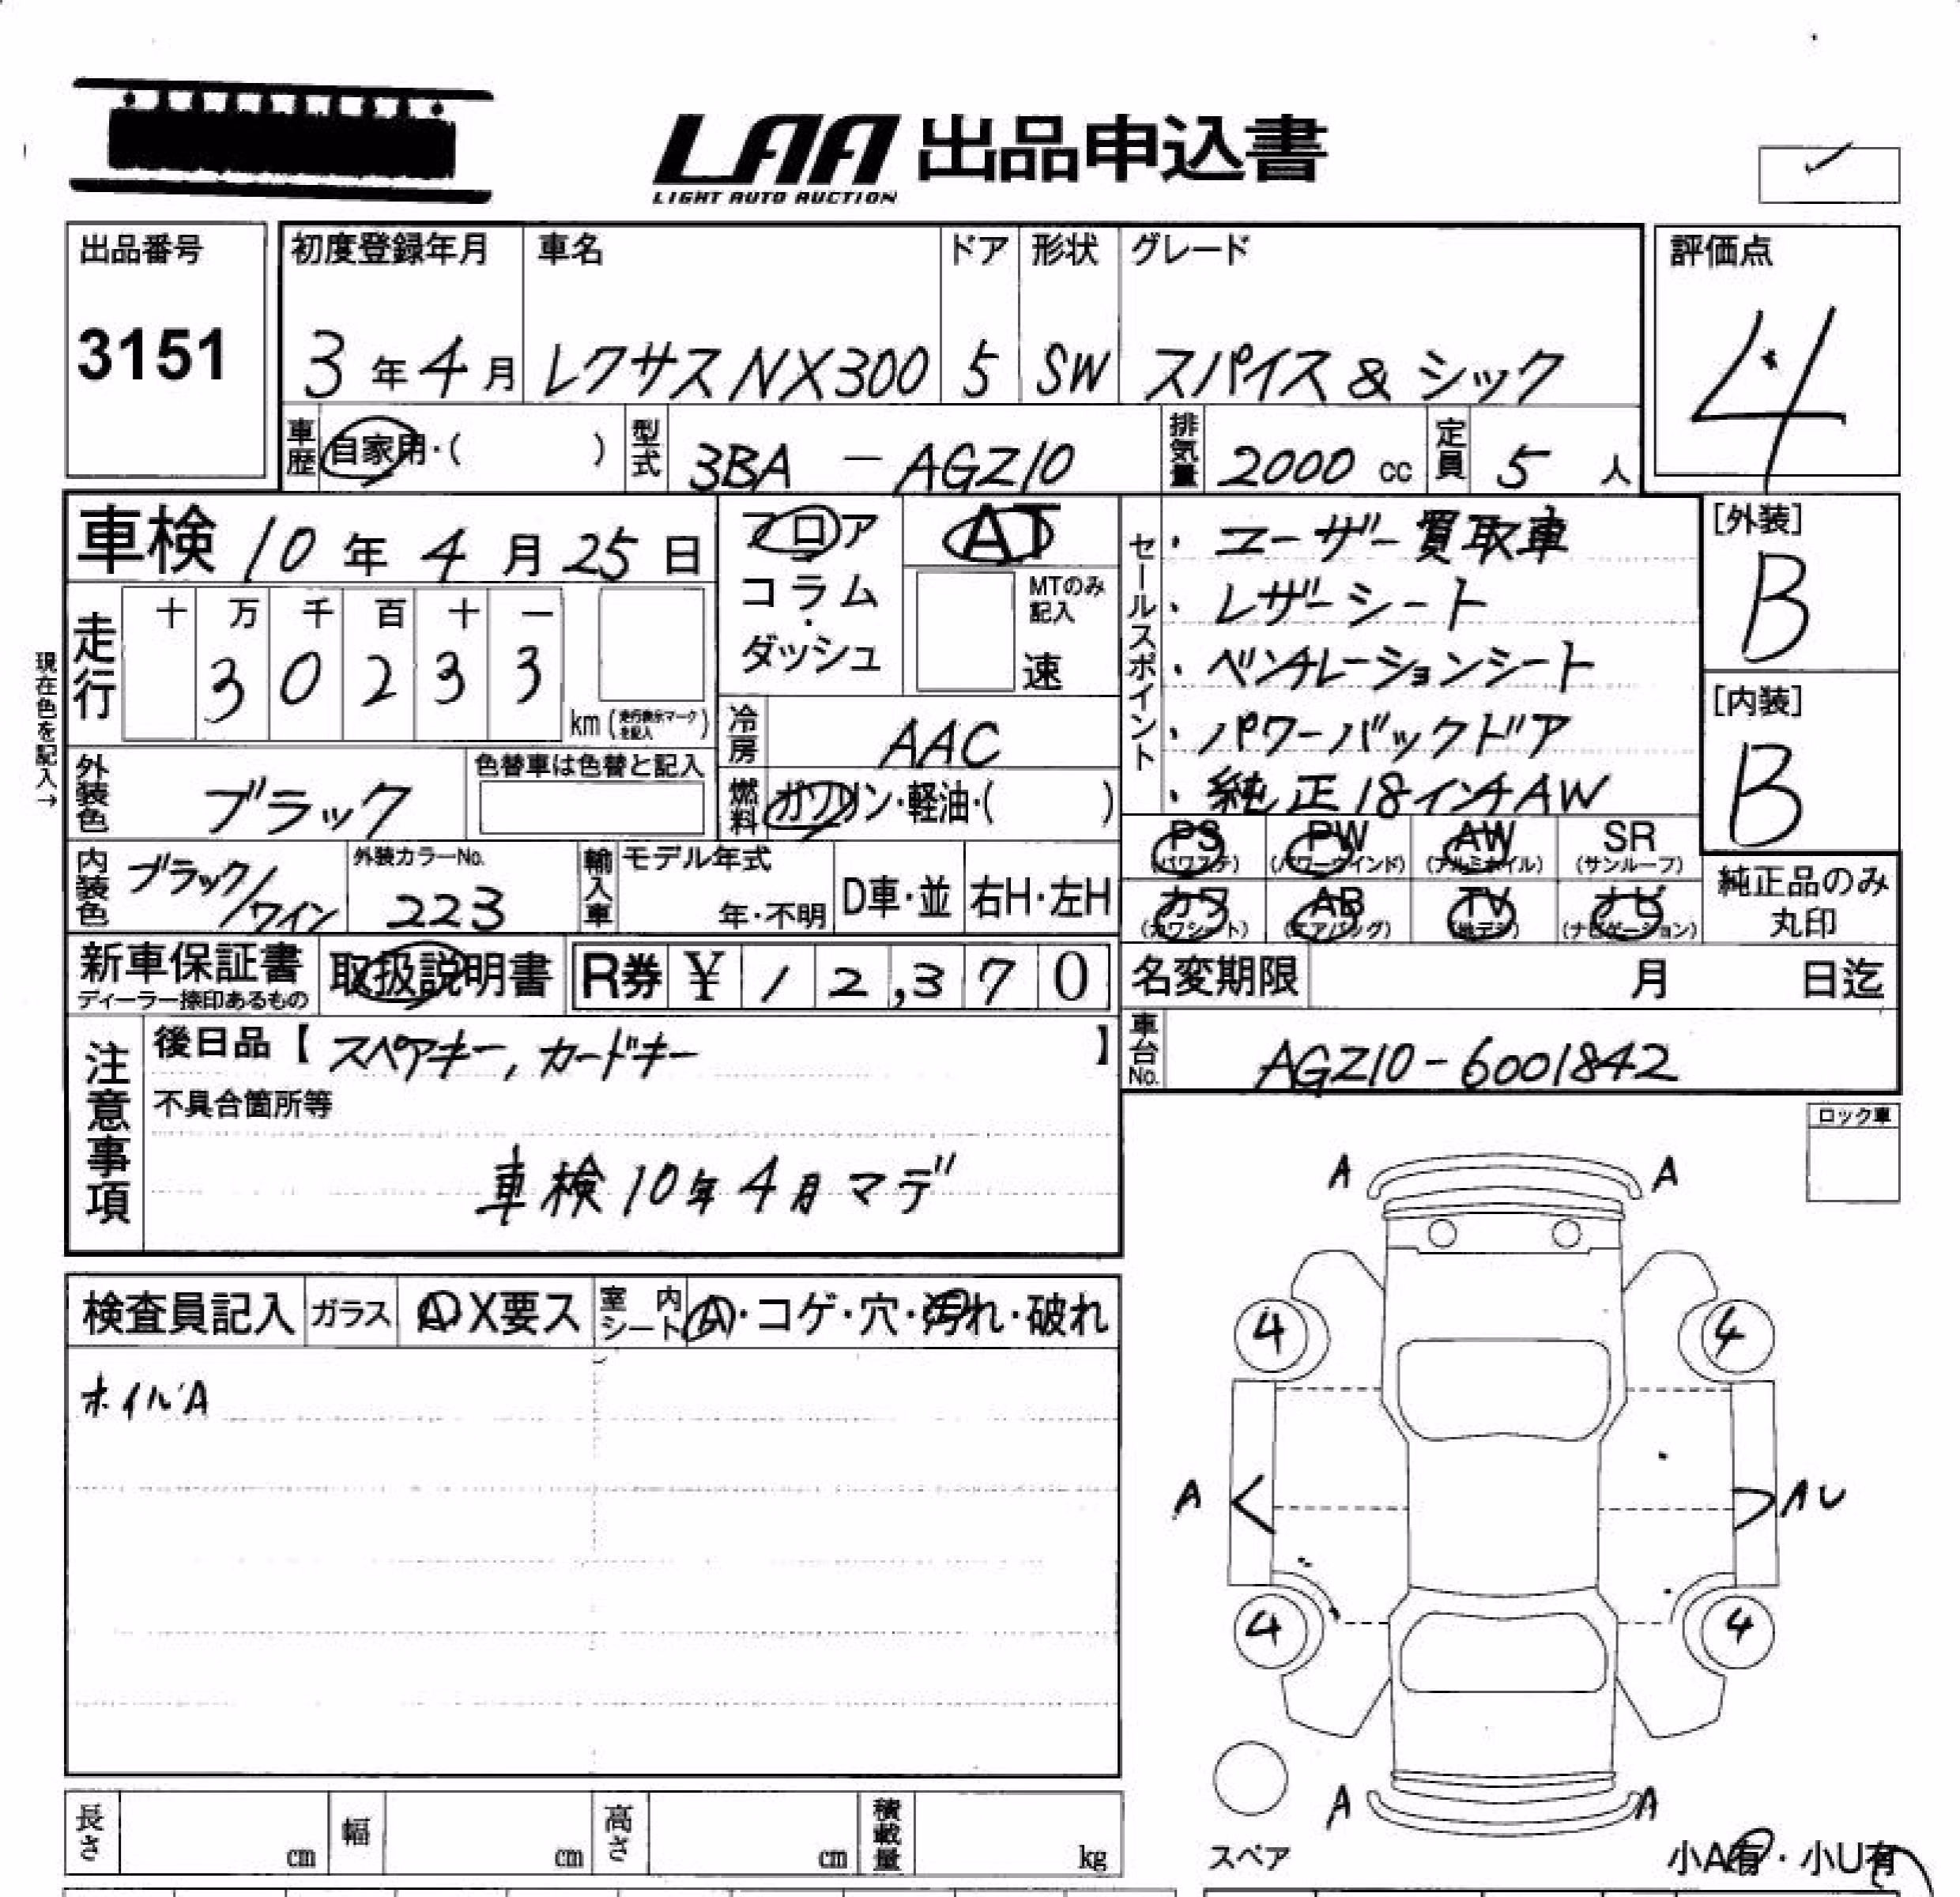 LAA 出品申込書
LIGHT AUTO AUCTION
出品番号
3151
初度登録年月
3年4月
車名
レクサス NX300
ドア
5
形状
SW
グレード
スパイス & シック
評価点
4
車歴
自家用・( )
型式
3BA - AGZ10
排気量
2000 cc
定員
5 人
車検 10年 4月 25日
フロア
コラム
・
ダッシュ
AT
MTのみ記入
速
セールスポイント
・ユーザー買取車
・レザーシート
・ベンチレーションシート
・パワーバックドア
・純正18インチAW
[外装]
B
[内装]
B
現在色を記入→
走行
十 万 千 百 十 一
3 0 2 3 3
km (走行表示マークを記入)
冷房
AAC
外装色
ブラック
色替車は色替と記入
燃料
ガソリン・軽油・( )
PS (パワステ)
PW (パワーウインド)
AW (アルミホイル)
SR (サンルーフ)
カワ (カワシート)
AB (エアバッグ)
TV (地デジ)
ナビ (ナビゲーション)
純正品のみ
丸印
内装色
ブラック/ワイン
外装カラーNo.
223
輸入車
モデル年式
年・不明
D車・並
右H・左H
新車保証書
ディーラー捺印あるもの
取扱説明書
R券 ¥ 12,370
名変期限 月 日迄
車台No.
AGZ10-6001842
注意事項
後日品【 スペアキー, カードキー 】
不具合箇所等
車検10年4月マデ
ロック車
検査員記入
ガラス A X要ス
室内シート
A・コゲ・穴・汚れ・破れ
ホイルA
A A
4 4
A AU
4 4
A A
スペア
小A有・小U有
長さ cm
幅 cm
高さ cm
積載量 kg